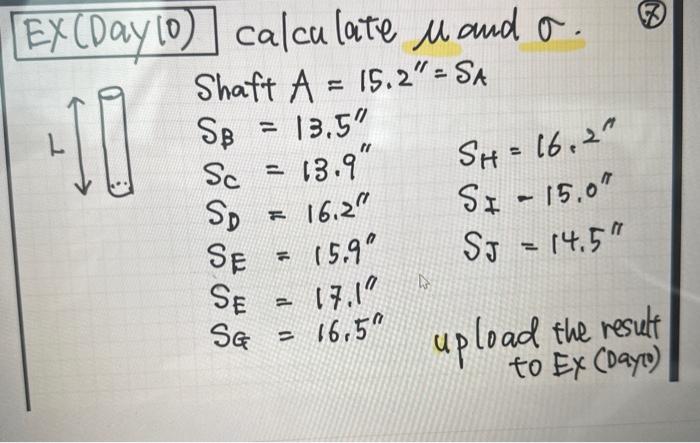 EX(Day10) calculate μ and σ. 7
Shaft A = 15.2" = SA
SB = 13.5"
SC = 13.9"
SD = 16.2"
SE = 15.9"
SE = 17.1"
SG = 16.5"
L
SH = 16.2"
SI - 15.0"
SJ = 14.5"
upload the result
to EX (Day10)